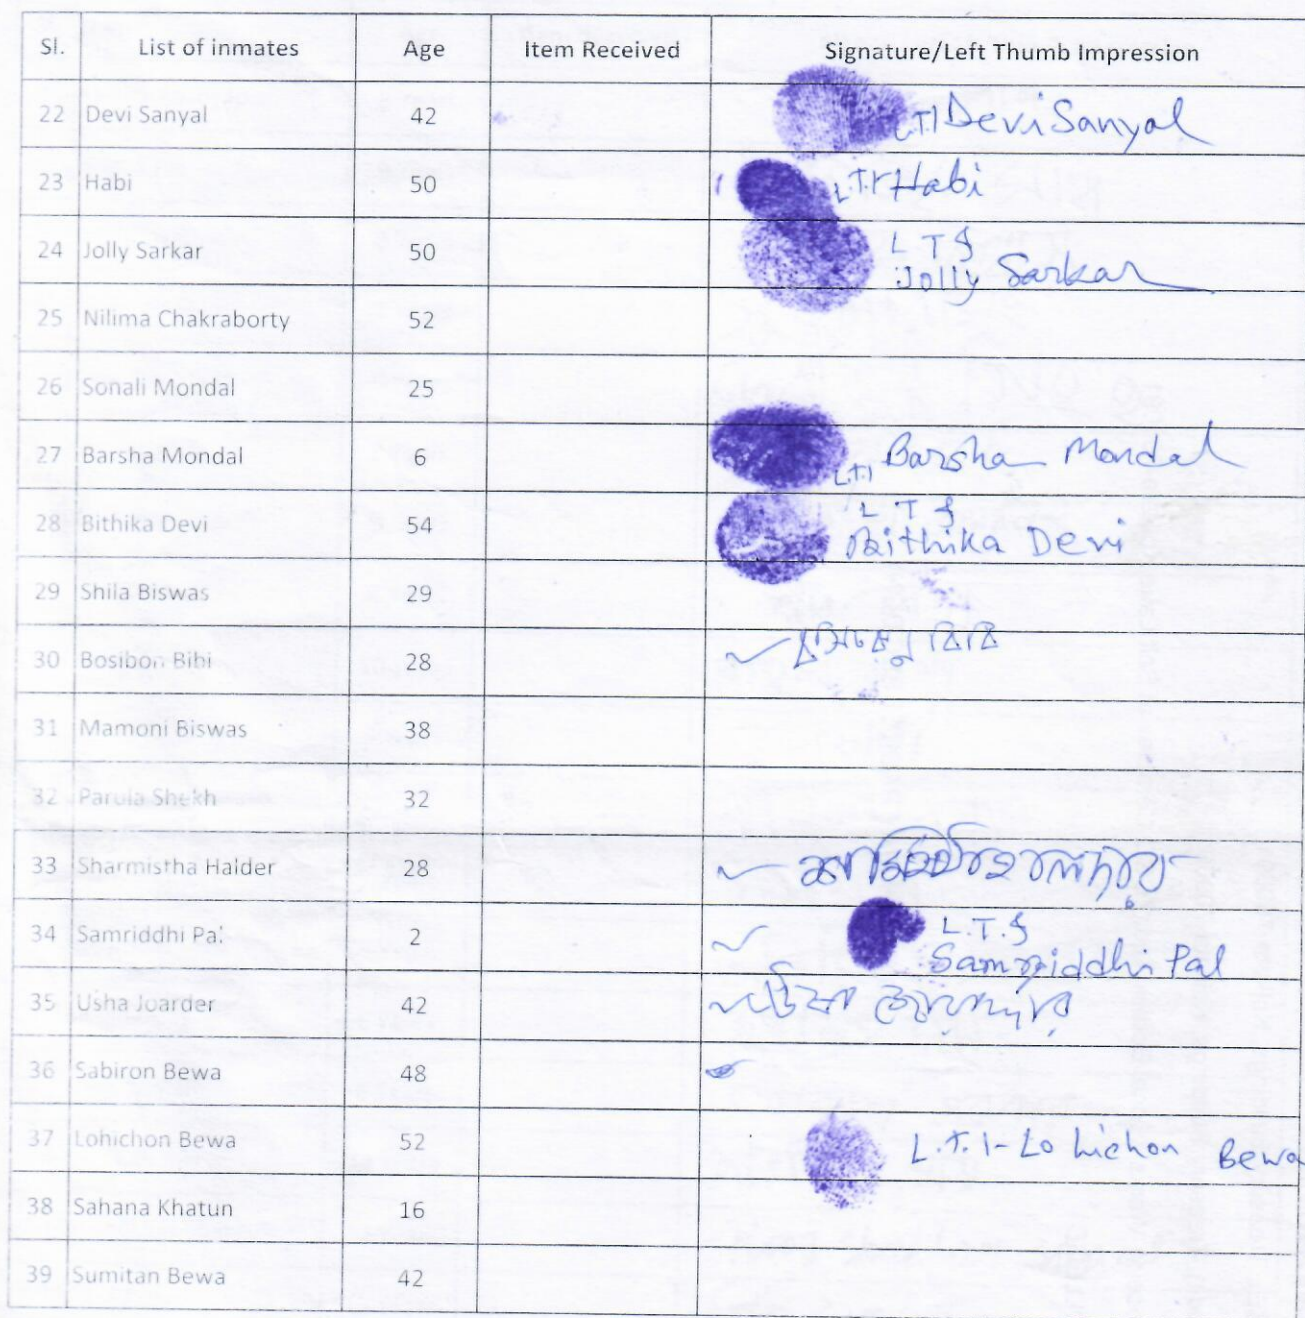 Sl. List of inmates Age Item Received Signature/Left Thumb Impression
22 Devi Sanyal 42 L.T.I Devi Sanyal
23 Habi 50 L.T.I Habi
24 Jolly Sarkar 50 L T I
Jolly Sarkar
25 Nilima Chakraborty 52
26 Sonali Mondal 25
27 Barsha Mondal 6 L.T.I Barsha Mondal
28 Bithika Devi 54 L T I
Bithika Devi
29 Shila Biswas 29
30 Bosibon Bibi 28 বিবি
31 Mamoni Biswas 38
32 Parula Shekh 32
33 Sharmistha Halder 28
34 Samriddhi Pal 2 L.T.I
Samriddhi Pal
35 Usha Joarder 42
36 Sabiron Bewa 48
37 Lohichon Bewa 52 L.T.I-Lohichon Bewa
38 Sahana Khatun 16
39 Sumitan Bewa 42